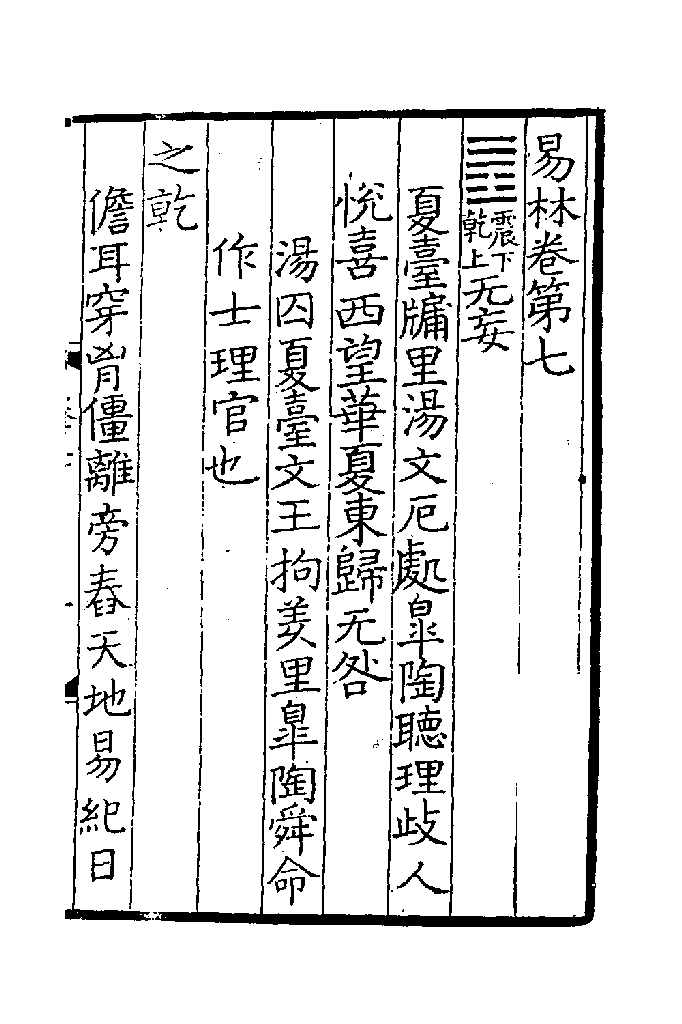 易林卷第七
䷘震下乾上无妄
夏臺牗里湯文厄處臯陶聽理歧人
悅喜西望華夏東歸无咎
湯囚夏臺文王拘羑里臯陶舜命
作士理官也
之乾
儋耳穿胷僵離旁舂天地易紀日